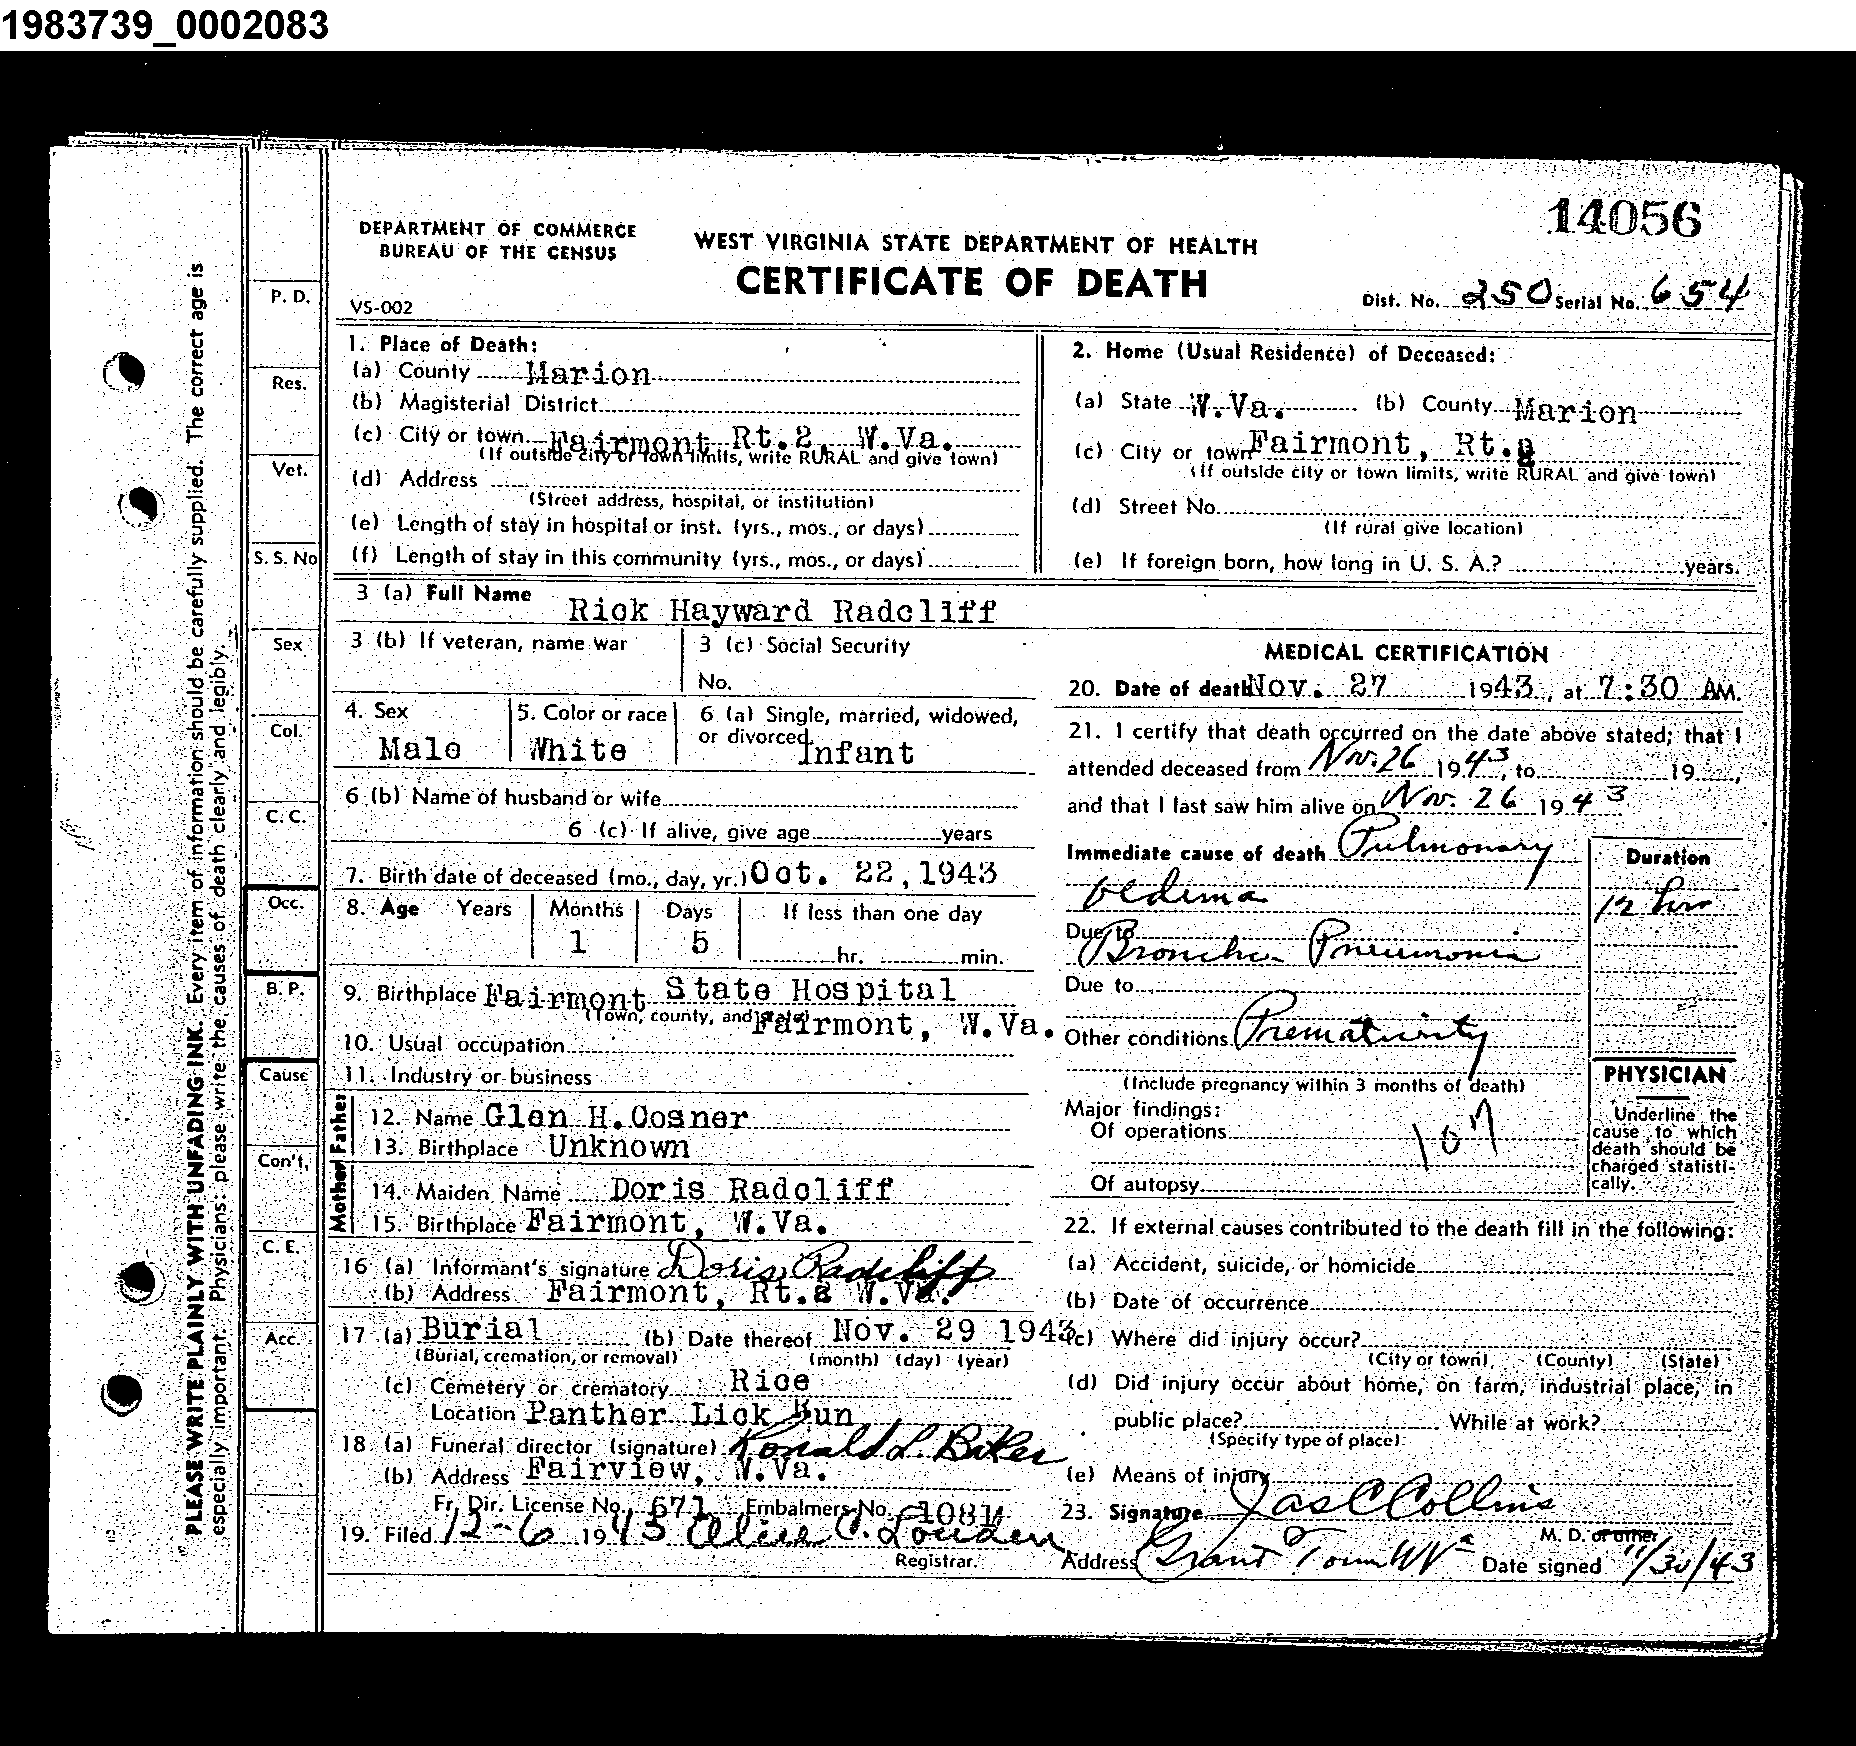 1983739_0002083
14056
DEPARTMENT OF COMMERCE
BUREAU OF THE CENSUS
WEST VIRGINIA STATE DEPARTMENT OF HEALTH
CERTIFICATE OF DEATH
VS-002
Dist. No. 250 Serial No. 654
PLEASE WRITE PLAINLY WITH UNFADING INK. Every item of information should be carefully supplied. The correct age is
especially important. Physicians: please write the causes of death clearly and legibly.
P. D.
Res.
Vet.
S. S. No
Sex
Col.
C. C.
Occ.
B. P.
Cause
Con't.
C. E.
Acc.
1. Place of Death:
(a) County Marion
(b) Magisterial District
(c) City or town Fairmont Rt.2, W.Va.
(If outside city or town limits, write RURAL and give town)
(d) Address
(Street address, hospital, or institution)
(e) Length of stay in hospital or inst. (yrs., mos., or days)
(f) Length of stay in this community (yrs., mos., or days)
2. Home (Usual Residence) of Deceased:
(a) State W.Va. (b) County Marion
(c) City or town Fairmont, Rt.2
(If outside city or town limits, write RURAL and give town)
(d) Street No.
(If rural give location)
(e) If foreign born, how long in U. S. A.? years.
3 (a) Full Name Rick Hayward Radcliff
3 (b) If veteran, name war
3 (c) Social Security
No.
4. Sex
Male
5. Color or race
White
6 (a) Single, married, widowed,
or divorced Infant
6 (b) Name of husband or wife
6 (c) If alive, give age years
7. Birth date of deceased (mo., day, yr.) Oct. 22, 1943
8. Age Years Months Days If less than one day
1 5 hr. min.
9. Birthplace Fairmont State Hospital
(Town, county, and state) Fairmont, W.Va.
10. Usual occupation
11. Industry or business
Father
12. Name Glen H. Cosner
13. Birthplace Unknown
Mother
14. Maiden Name Doris Radcliff
15. Birthplace Fairmont, W.Va.
16 (a) Informant's signature Doris Radcliff
(b) Address Fairmont, Rt.2 W.Va.
17 (a) Burial (b) Date thereof Nov. 29 1943
(Burial, cremation, or removal) (month) (day) (year)
(c) Cemetery or crematory Rice
Location Panther Lick Run
18 (a) Funeral director (signature) Ronald L. Baker
(b) Address Fairview, W.Va.
Fr. Dir. License No. 671 Embalmers No. 1081
19. Filed 12-6 1943 Alice C. Louden
Registrar.
MEDICAL CERTIFICATION
20. Date of death Nov. 27 1943, at 7:30 AM.
21. I certify that death occurred on the date above stated; that I
attended deceased from Nov. 26 1943, to 19 ,
and that I last saw him alive on Nov. 26 1943
Immediate cause of death Pulmonary
oedema
Duration
12 hrs
Due to
Broncho Pneumonia
Due to
Other conditions Prematurity
(Include pregnancy within 3 months of death)
Major findings:
Of operations
107
Of autopsy
PHYSICIAN
Underline the
cause to which
death should be
charged statisti-
cally.
22. If external causes contributed to the death fill in the following:
(a) Accident, suicide, or homicide
(b) Date of occurrence
(c) Where did injury occur?
(City or town) (County) (State)
(d) Did injury occur about home, on farm, industrial place, in
public place? While at work?
(Specify type of place)
(e) Means of injury
23. Signature Jas C Collins
M. D. or other
Address Grant Town WVa Date signed 11/30/43